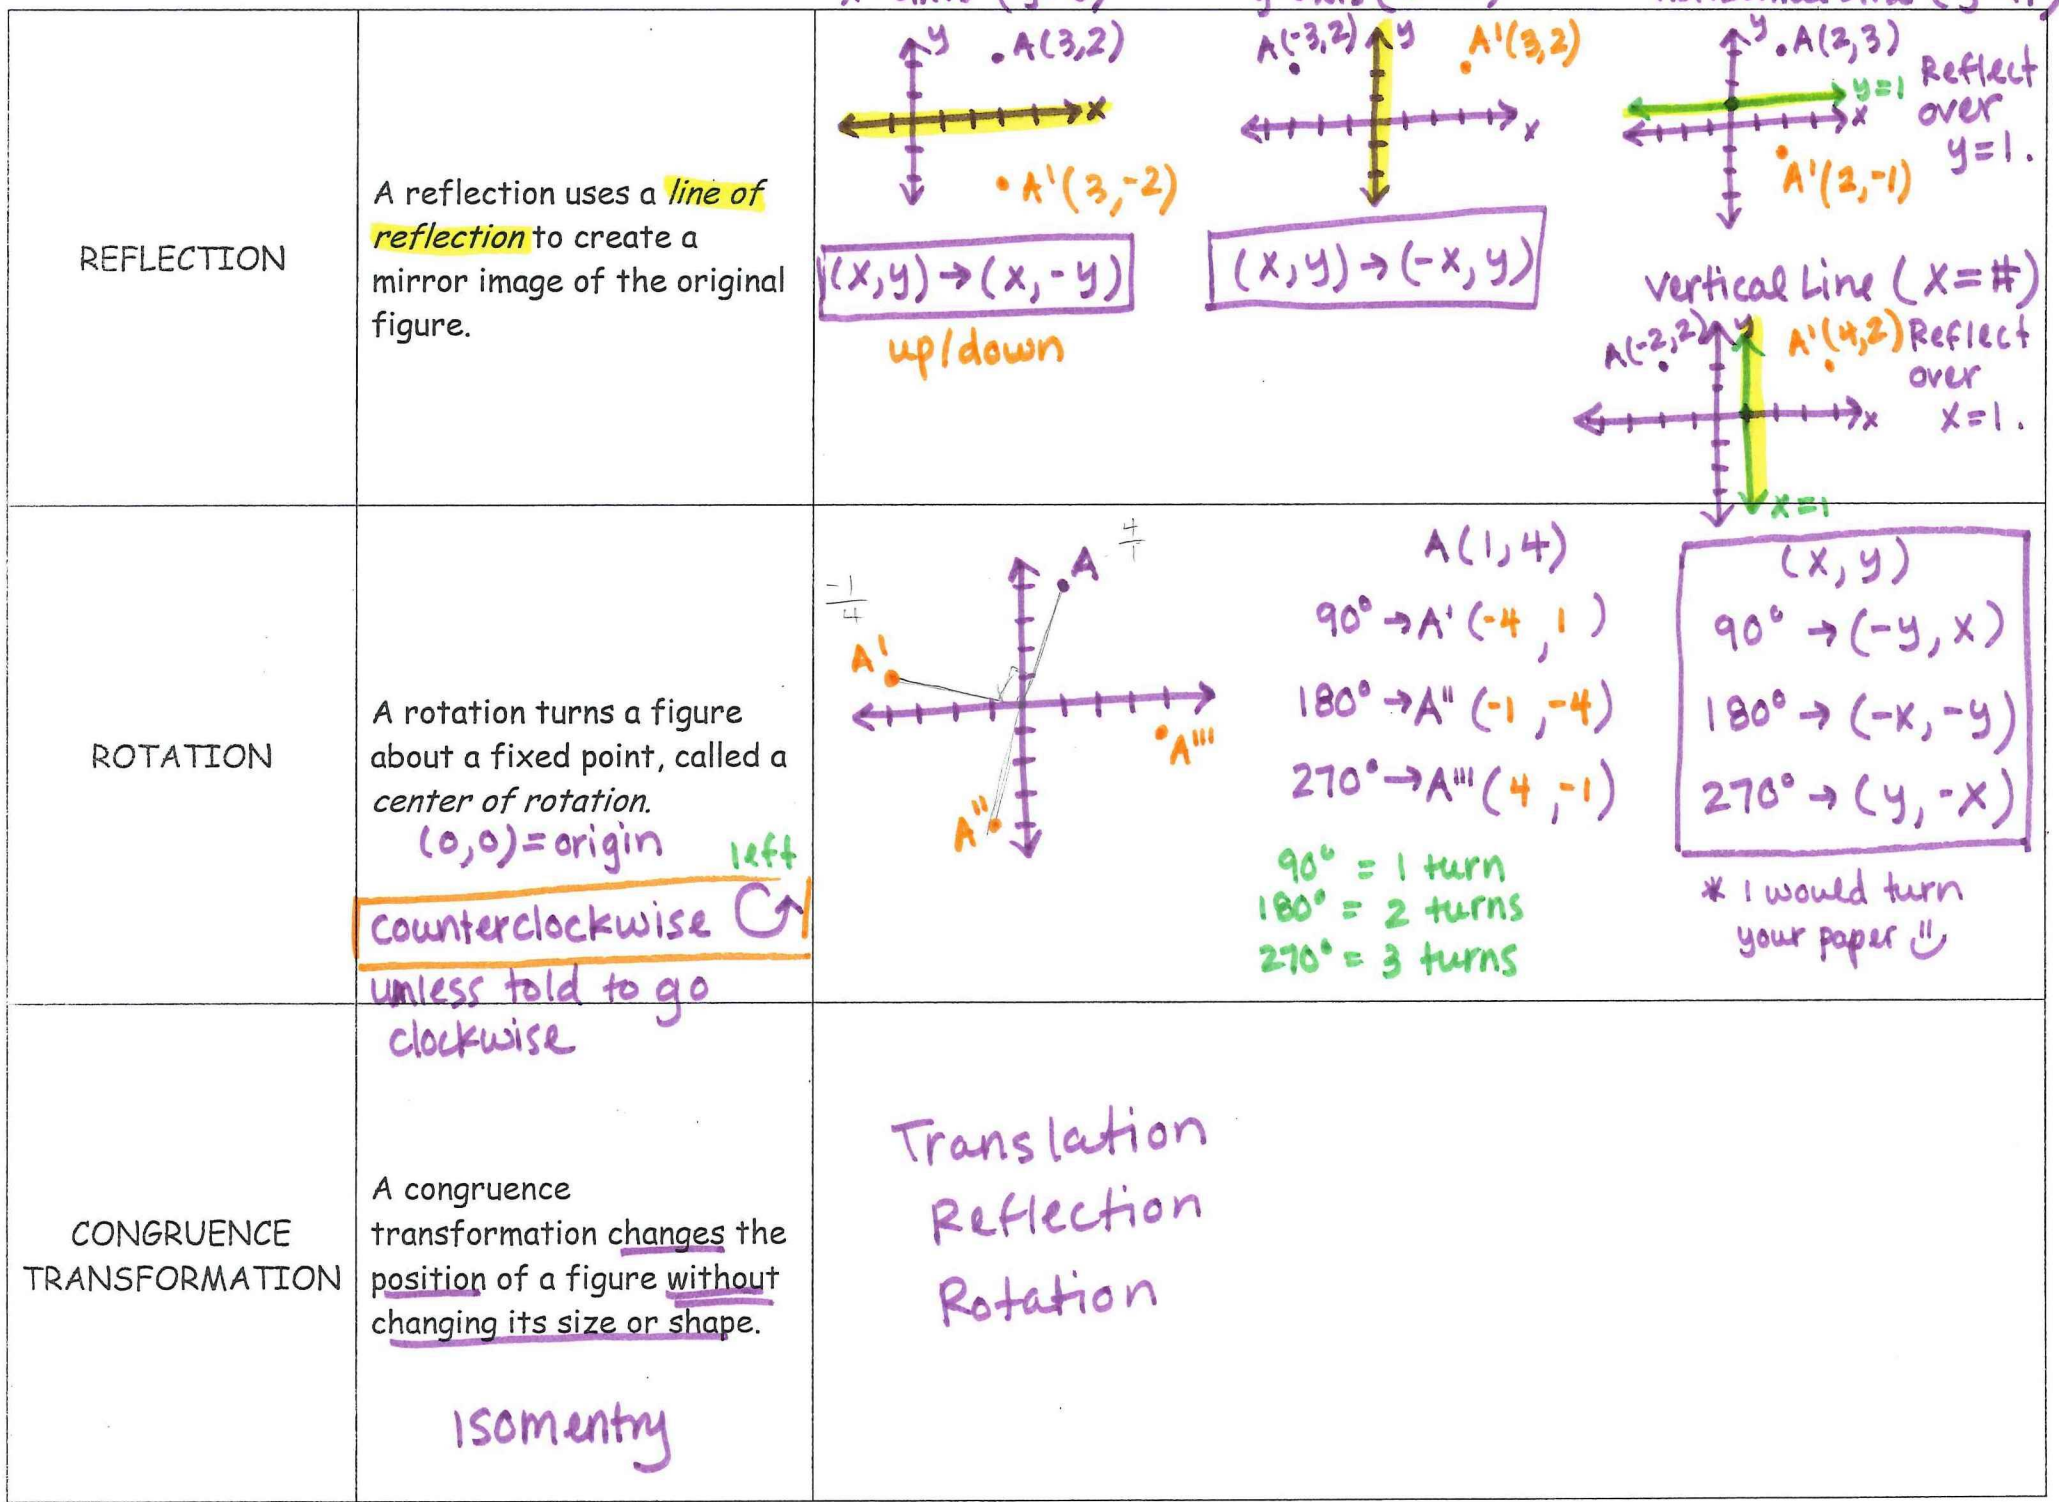 REFLECTION
A reflection uses a line of
reflection to create a
mirror image of the original
figure.
y
A(3,2)
x
A'(3,-2)
(x,y)→(x,-y)
up/down
A(-3,2)
y
A'(3,2)
x
(x,y)→(-x,y)
y
A(2,3)
y=1
x
A'(2,-1)
Reflect
over
y=1.
Vertical Line (x=#)
A(-2,2)
y
A'(4,2)
x
x=1
Reflect
over
x=1.
ROTATION
A rotation turns a figure
about a fixed point, called a
center of rotation.
(0,0)=origin
left
counterclockwise
unless told to go
clockwise
A
4/1
-1/4
A'
A''
A'''
A(1,4)
90°→A'(-4,1)
180°→A''(-1,-4)
270°→A'''(4,-1)
90° = 1 turn
180° = 2 turns
270° = 3 turns
(x,y)
90°→(-y,x)
180°→(-x,-y)
270°→(y,-x)
* I would turn
your paper
CONGRUENCE
TRANSFORMATION
A congruence
transformation changes the
position of a figure without
changing its size or shape.
Isomentry
Translation
Reflection
Rotation